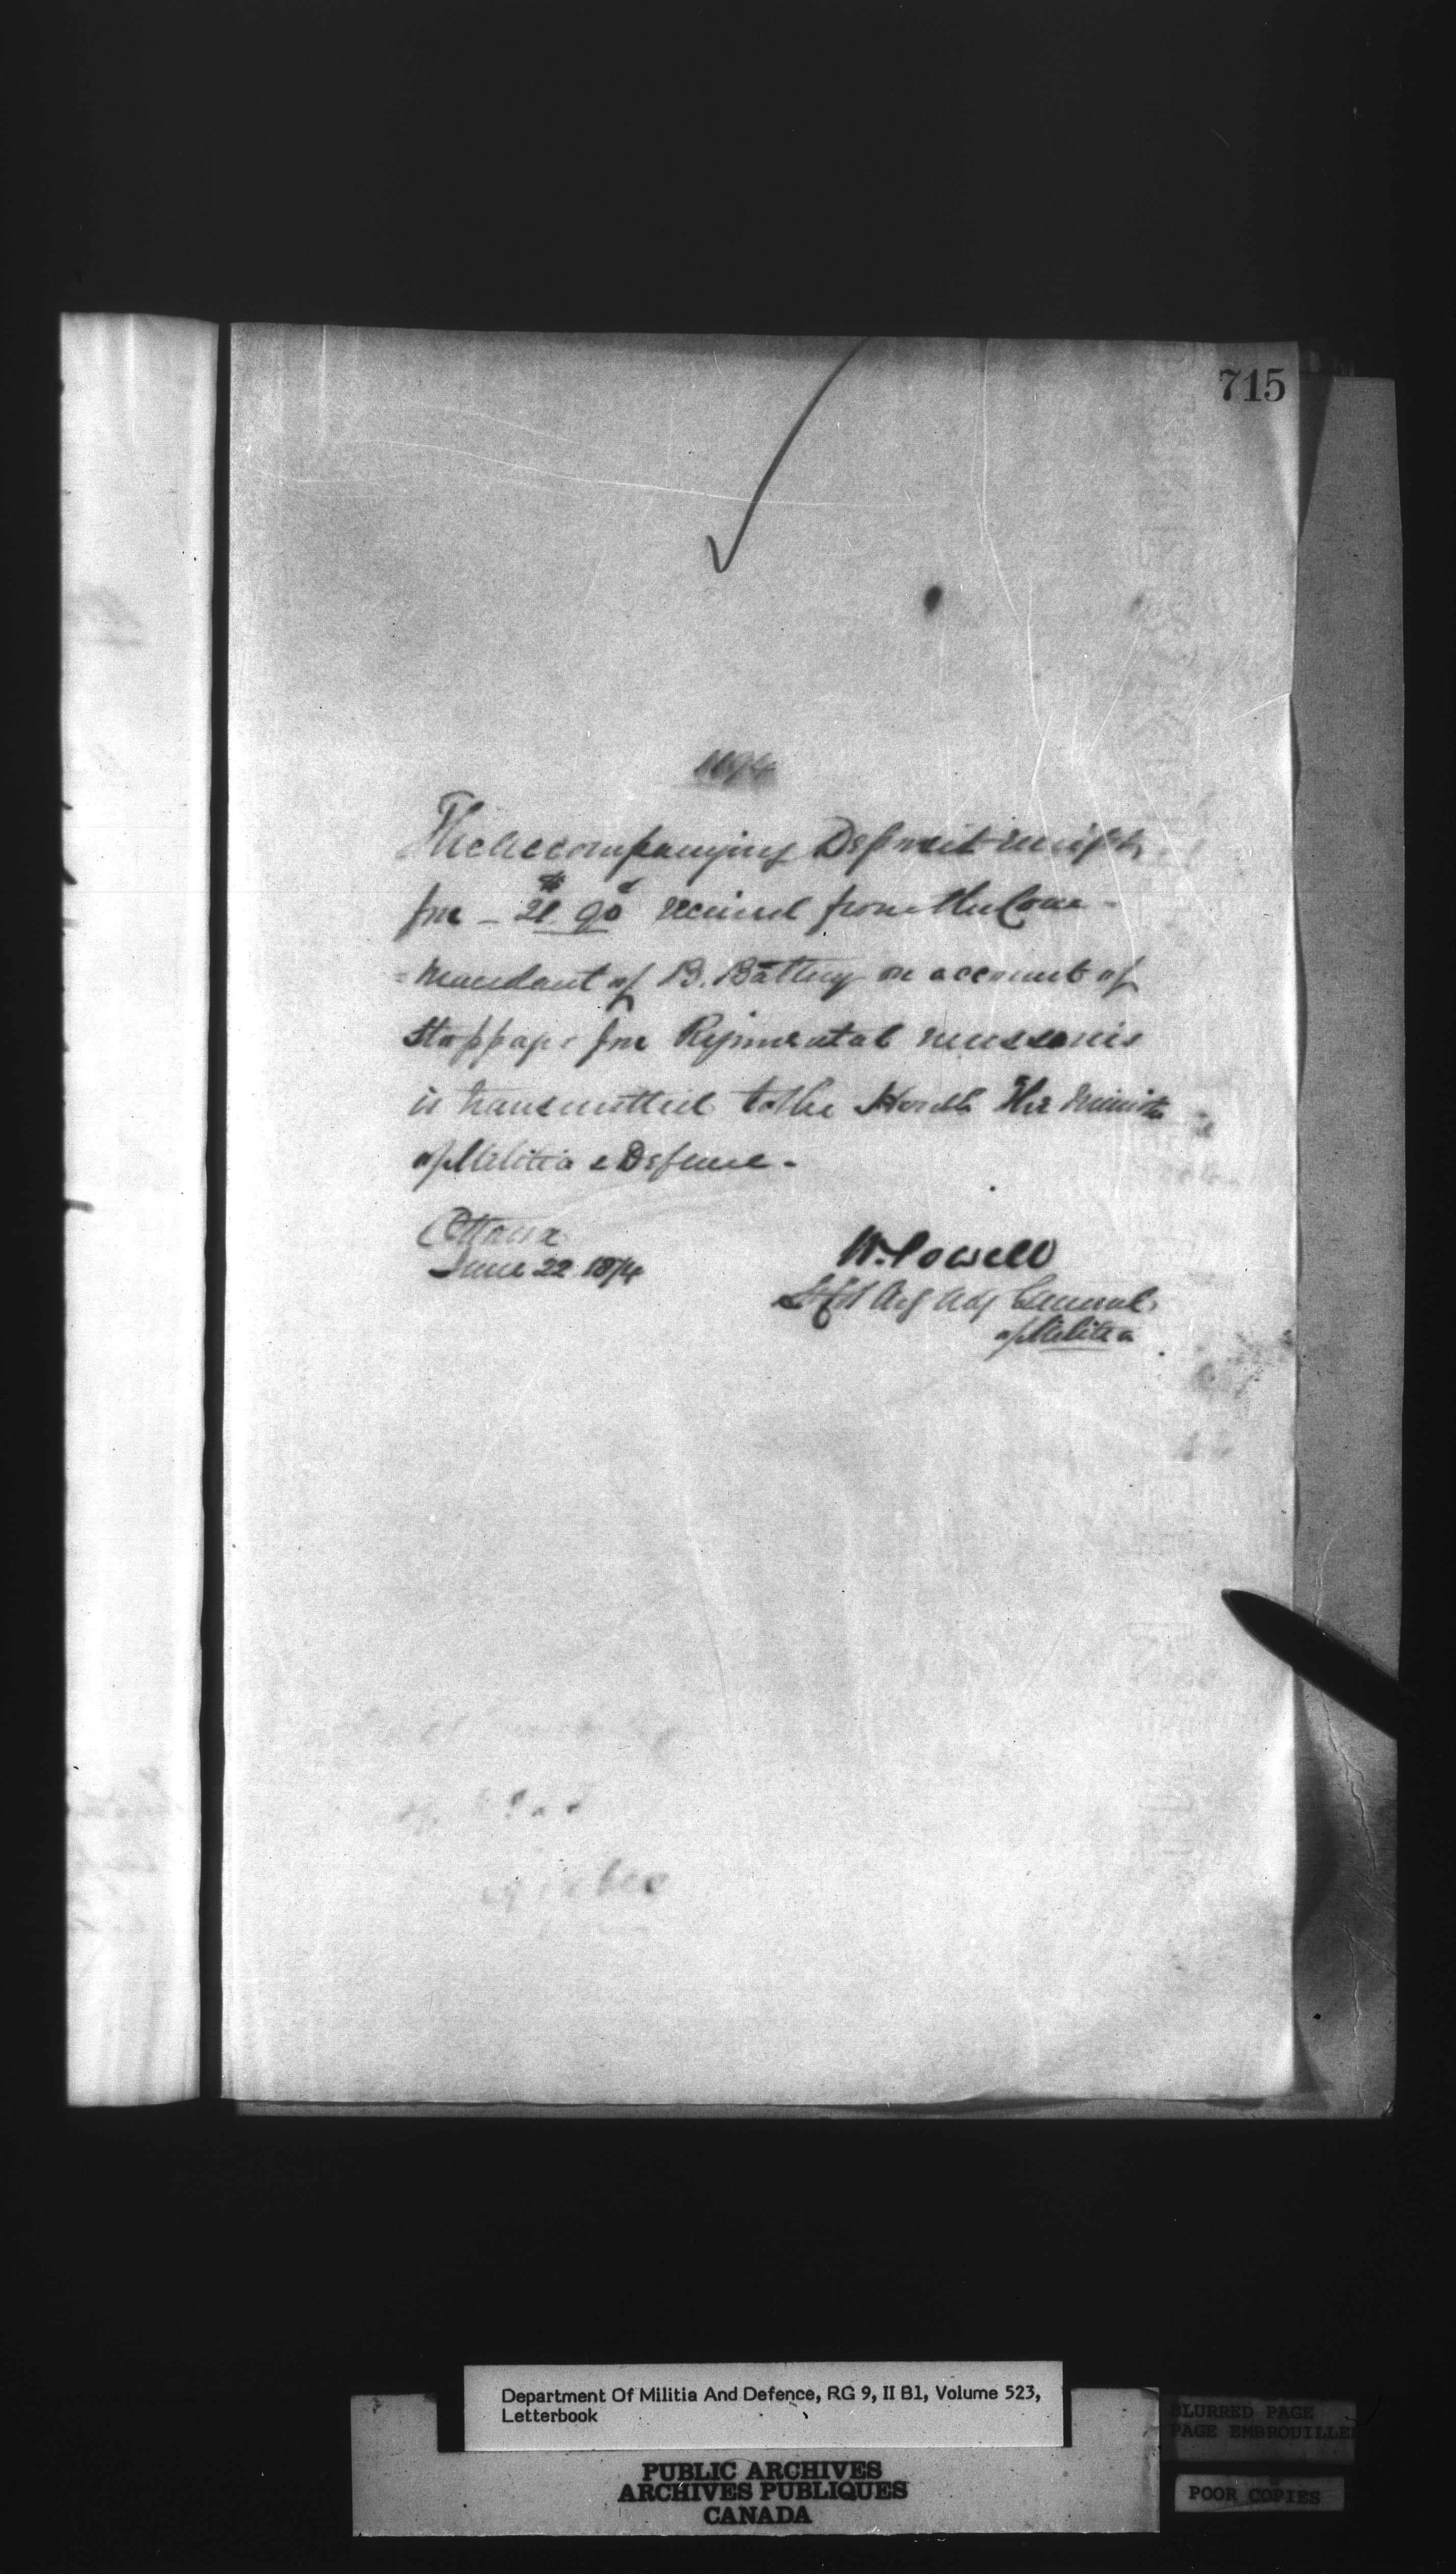 715
The accompanying Deposit receipt
for — $21.90 received from the Com-
=mandant of B. Battery on account of
stoppages for Regimental necessaries
is transmitted to the Honble The Minister
of Militia & Defence.
Ottawa
June 22 1874
W. Powell
Lt Col Actg Adj General
of Militia
Quebec
Department Of Militia And Defence, RG 9, II B1, Volume 523,
Letterbook
PUBLIC ARCHIVES
ARCHIVES PUBLIQUES
CANADA
BLURRED PAGE
PAGE EMBROUILLEE
POOR COPIES